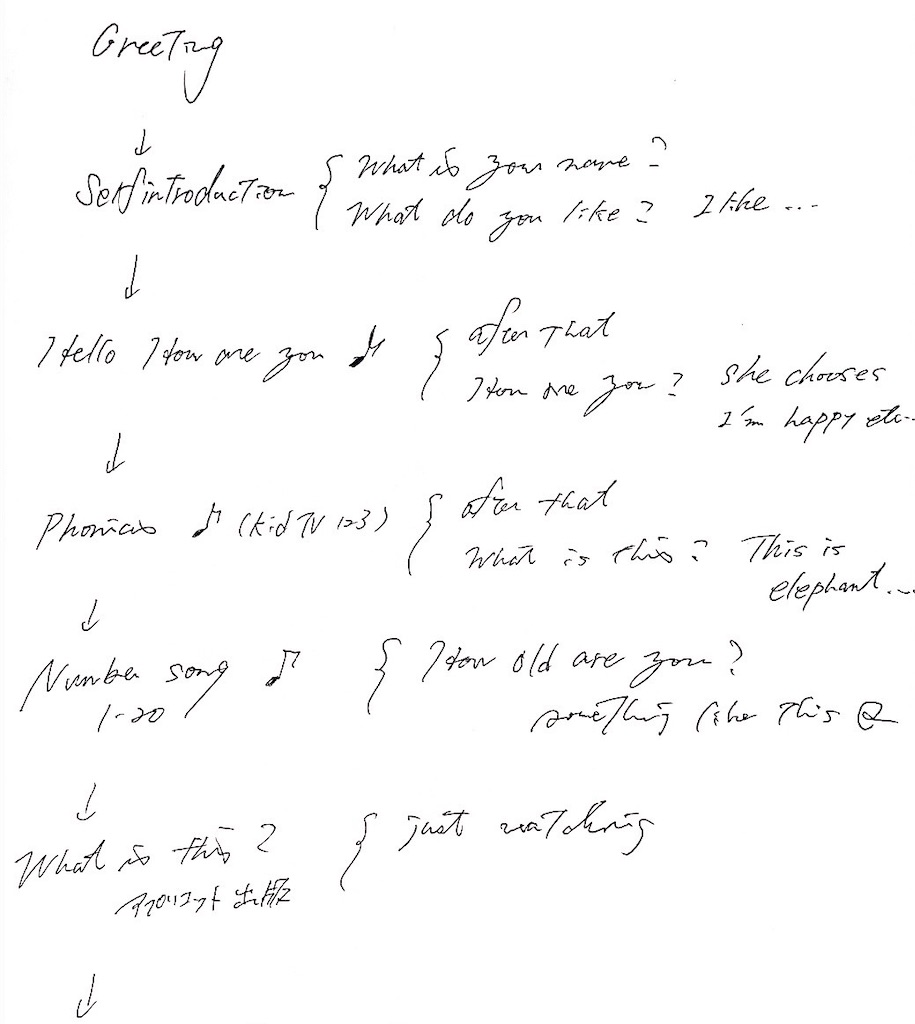 Greeting
↓
Selfintroduction { What is you name?
What do you like? I like ...
↓
Hello How are you ♪ { after that
How are you? she chooses
I'm happy etc..
↓
Phonics ♪ (Kid TV 123) { after that
What is this? This is
elephant...
↓
Number song ♪ { How old are you?
1-20 something like this Q
↓
What is this? { just watching
アプリコット出版
↓